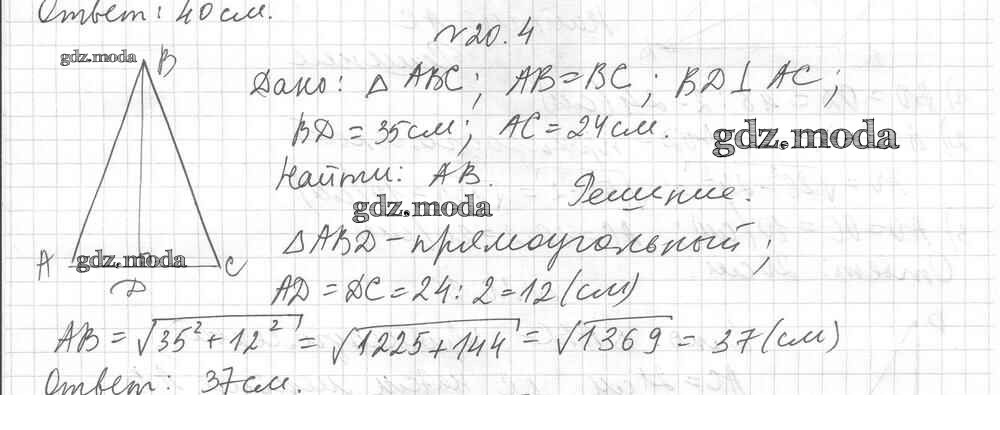 Ответ: 40 см.
№20.4
gdz.moda
B
Дано: △ ABC; AB = BC; BD ⊥ AC;
BD = 35 см; AC = 24 см.
gdz.moda
Найти: AB.
Решение.
gdz.moda
△ABD – прямоугольный;
A
gdz.moda
C
D
AD = DC = 24 : 2 = 12 (см)
AB = √35² + 12² = √1225 + 144 = √1369 = 37 (см)
Ответ: 37 см.